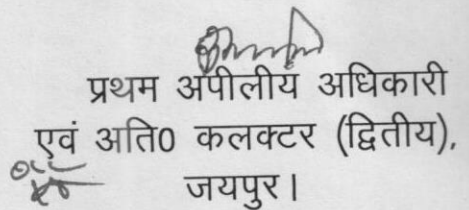 प्रथम अपीलीय अधिकारी
एवं अति0 कलक्टर (द्वितीय),
जयपुर।